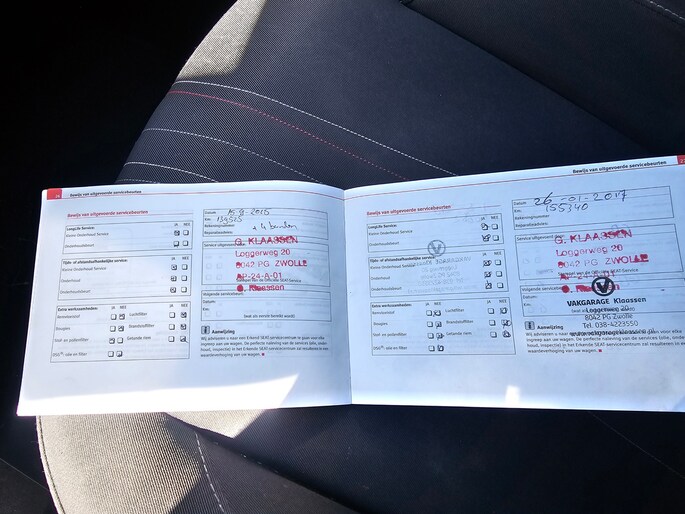 Bewijs van uitgevoerde servicebeurten
Bewijs van uitgevoerde servicebeurten
LongLife Service: JA NEE
Kleine Onderhoud Service
Onderhoudsbeurt
Tijds- of afstandsafhankelijke service: JA NEE
Kleine Onderhoud Service
Inspectie
Onderhoudsbeurt
Extra werkzaamheden: JA NEE JA NEE
Remvloeistof Luchtfilter
Bougies Brandstoffilter
Stof- en pollenfilter Getande riem
DSG olie en filter
Datum: 2015
Km:
Rekeningnummer
Reparatieadvies: + 4 banden
Service uitgevoerd
G. KLAASSEN
Loggerweg 20
8042 PG ZWOLLE
AP-24-A-01
Stempel van de Officiële SEAT-Service
G. Klaassen
Volgende servicebeurt:
Datum:
Km:
(wat als eerste bereikt word)
Aanwijzing
Wij adviseren u naar een Erkende SEAT servicecentrum te gaan voor elke
ingreep aan uw wagen. De perfecte naleving van de services (olie, onder-
houd, inspectie) in het Erkende SEAT-servicecentrum zal resulteren in een
waardeverhoging van uw wagen.
Bewijs van uitgevoerde servicebeurten
Bewijs van uitgevoerde servicebeurten
LongLife Service: JA NEE
Kleine Onderhoud Service
Onderhoudsbeurt
Tijds- of afstandsafhankelijke service: JA NEE
Kleine Onderhoud Service
Inspectie
Onderhoudsbeurt
Extra werkzaamheden: JA NEE JA NEE
Remvloeistof Luchtfilter
Bougies Brandstoffilter
Stof- en pollenfilter Getande riem
DSG olie en filter
Datum: 26-01-2017
Km: 155340
Rekeningnummer
Reparatieadvies:
Service uitgevoerd
G. KLAASSEN
Loggerweg 20
8042 PG ZWOLLE
AP-24-A-01
G. Klaassen
Volgende service
Datum:
Km:
VAKGARAGE Klaassen
Loggerweg 20
8042 PG Zwolle
Tel. 038-4223550
Aanwijzing
Wij adviseren u naar een
ingreep aan uw wagen. De perfecte naleving van de services (olie, onder-
houd, inspectie) in het Erkende SEAT-servicecentrum zal resulteren in een
waardeverhoging van uw wagen.